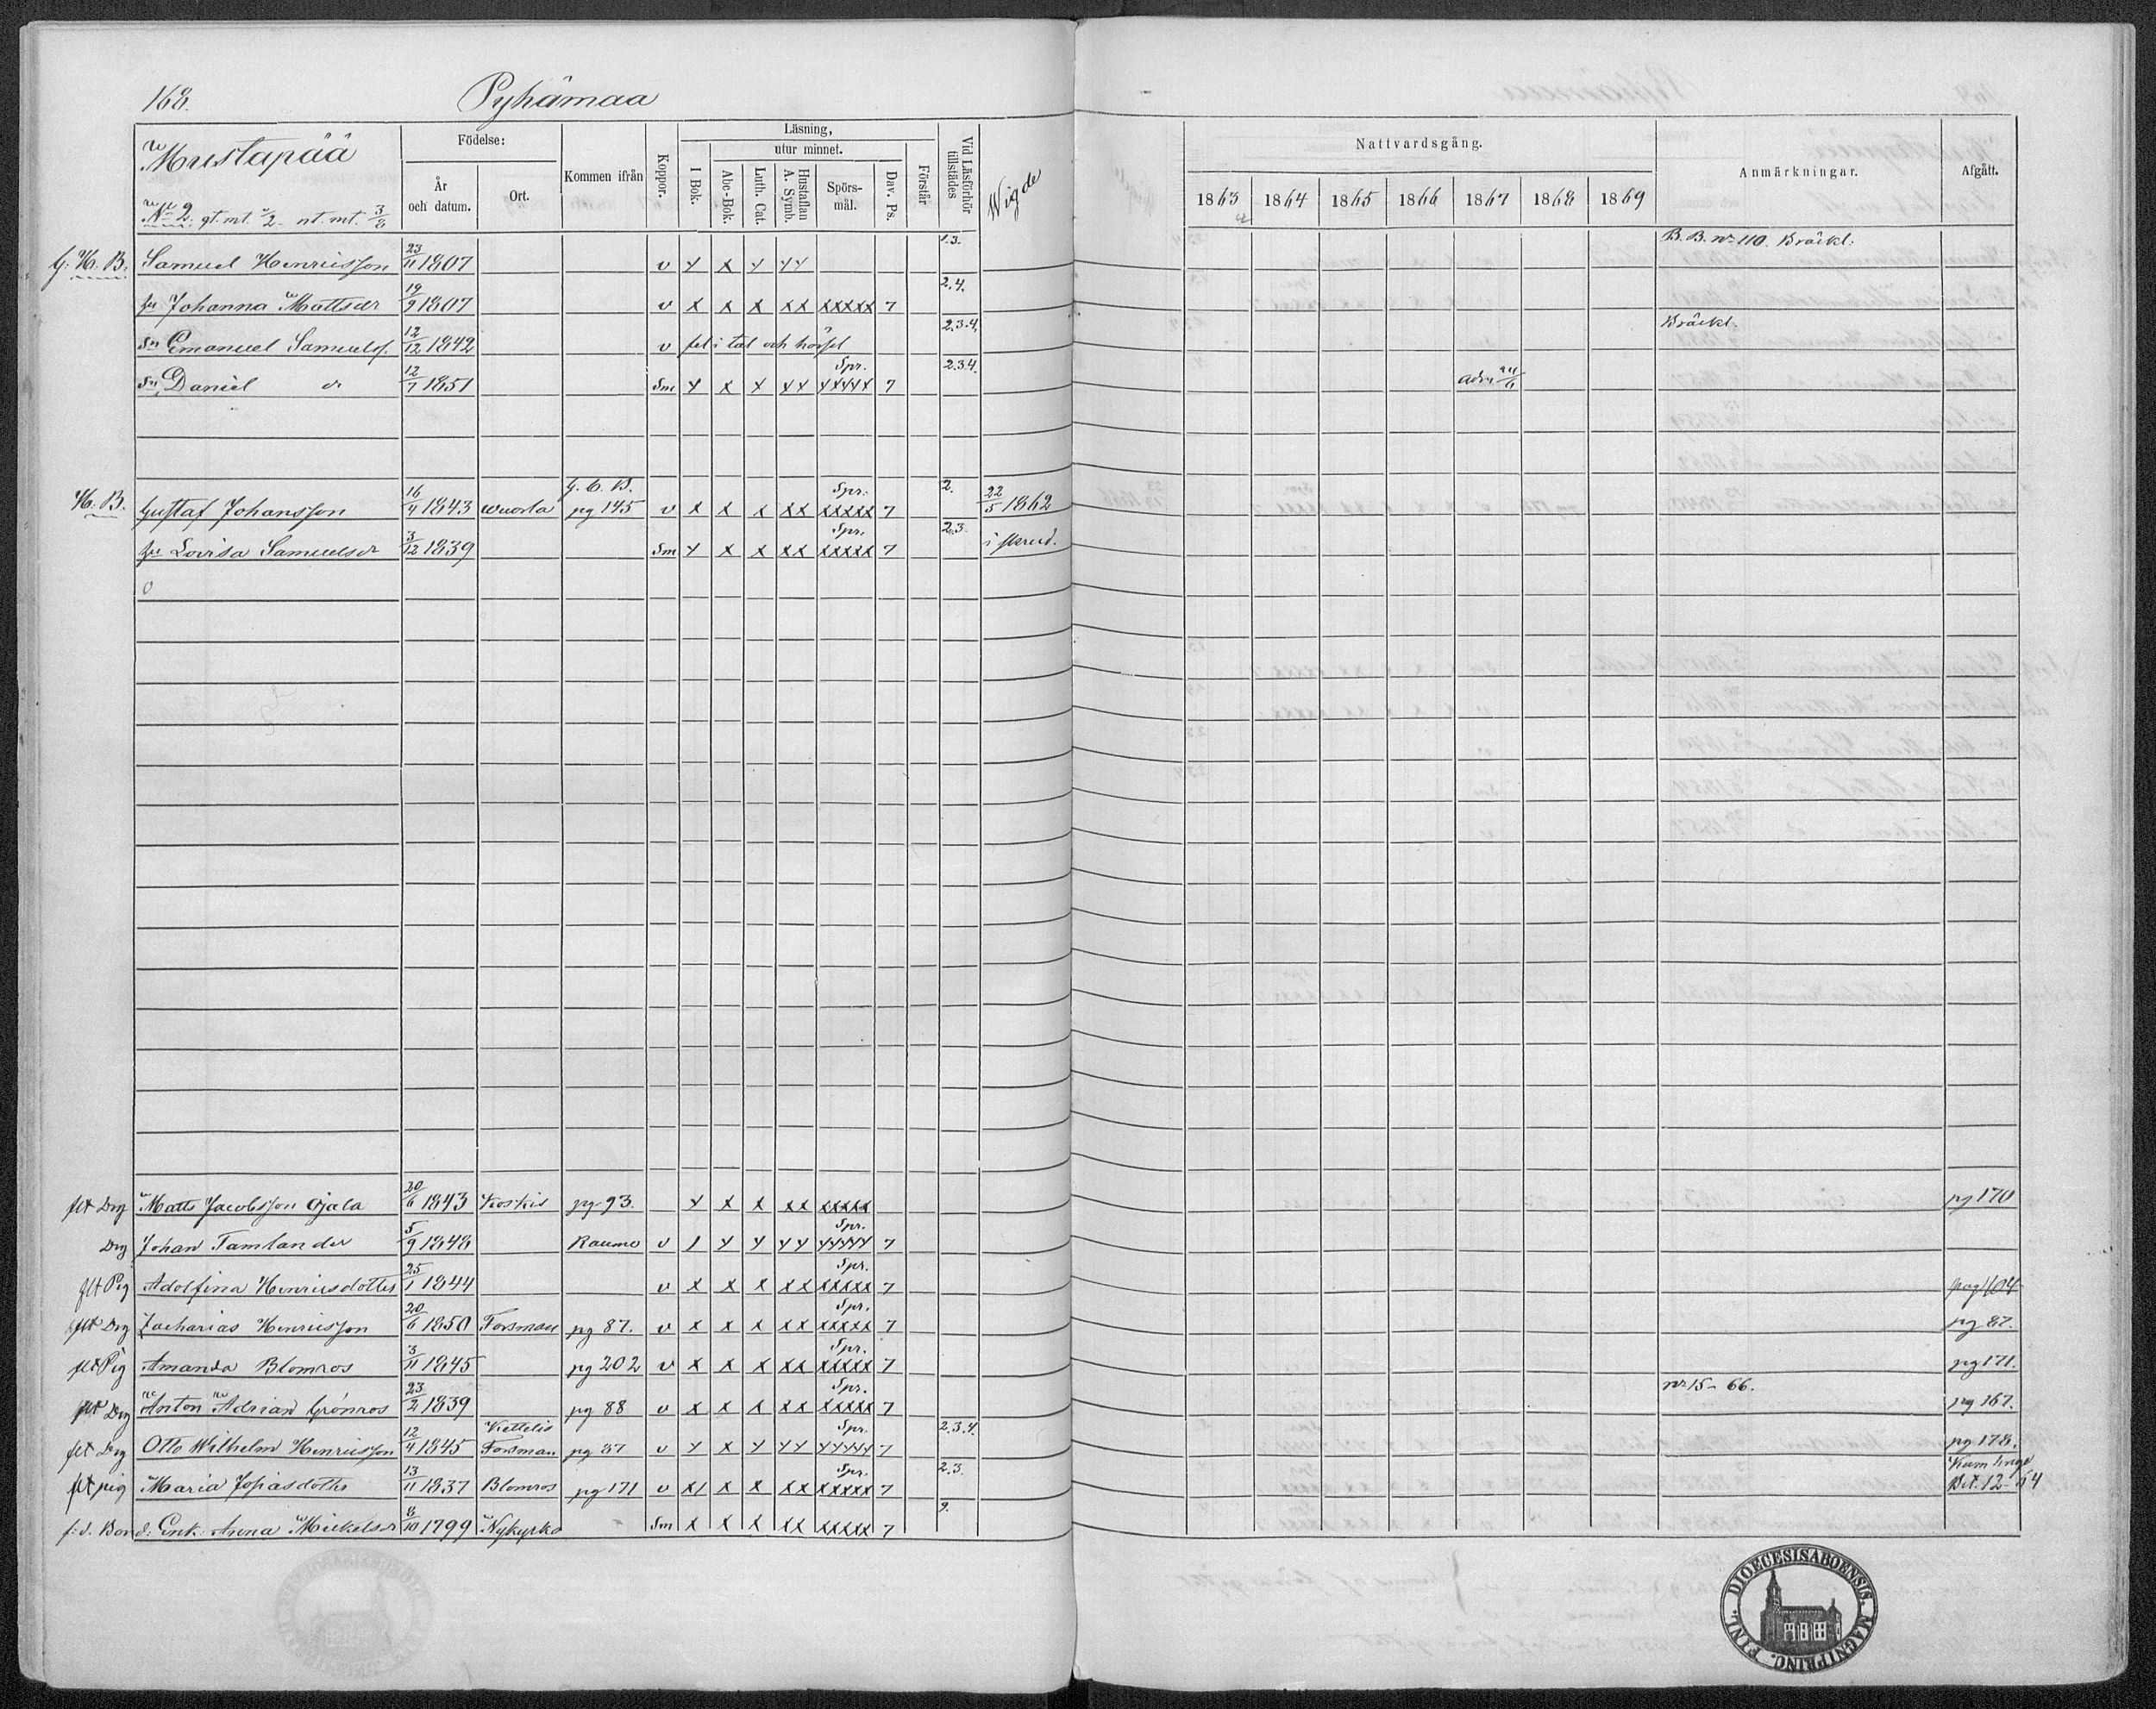 168. Pyhämaa
Mustapää
No 2. gt. mt. 1/2 - nt. mt. 3/8
Födelse:
År och datum.
Ort.
Kommen ifrån
Koppor.
Läsning,
utur minnet.
I Bok.
Abc-Bok.
Luth. Cat.
Hustaflan A. Symb.
Spörs-mål.
Dav. Ps.
Förstår
Vid Läsförhör tillstädes
Wigde
Nattvardsgång.
1863 1864 1865 1866 1867 1868 1869
Anmärkningar.
Afgått.
G. H. B. Samuel Henriksson 23/11 1807 v 1.3. B. B. nr 110. Bräckl:
hu Johanna Mattsdr 19/9 1807 v x x x xx xxxxx 7 2.4.
sn Emanuel Samuelss. 12/12 1842 v fel i tal och hörsel 2.3.4. Bräckl.
sn Daniel dr 12/7 1851 Sm Spr. 7 2.3.4. adm 24/6
H. B. Gustaf Johansson 16/4 1843 Wuorla G. C. B. pg 145 v x x x xx Spr. xxxxx 7 2. 22/5 1862
hu Lovisa Samuelsdr 3/12 1839 Sm x x x xx Spr. xxxxx 7 2.3. i skrud.
flt Drg Matts Jacobsson Ojala 20/6 1843 Koskis pg 93. x x x xx xxxxx pg 170
Drg Johan Tamlander 5/9 1848 Raumo v Spr. 7
flt Pig Adolfina Henriksdotter 25/1 1844 v x x x xx Spr. xxxxx 7 pag 104
flt Drg Zacharias Henriksson 20/6 1850 Forsman pg 87. v x x x xx Spr. xxxxx 7 pg 87.
flt Pig Amanda Blomros 3/11 1845 pg 202 v x x x xx Spr. xxxxx 7 pg 171.
flt Drg Anton Adrian Grönros 23/2 1839 pg 88 v x x x xx Spr. xxxxx 7 nr 15-66. pg 167.
flt Drg Otto Wilhelm Henriksson 12/4 1845 Kettelis Forsman pg 87 v Spr. 7 2.3.4. pg 178.
flt pig Maria Josiasdotter 13/11 1837 Blomros pg 171 v x x x xx Spr. xxxxx 7 2.3. Kumlinge Bet. 12-64
f. d. Bond: Enk: Anna Mickelsdr 6/10 1799 Nykyrko Sm x x x xx xxxxx 7 2.
DIOECESIS ABOENSIS. MAGNI PRINC. FINL.